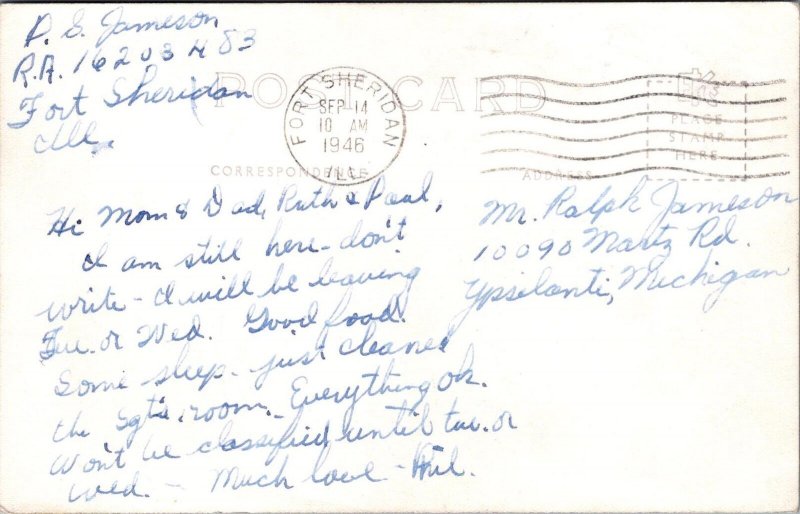 P. S. Jameson
R.A. 16203483
Fort Sheridan
Ill.
POST CARD
FORT SHERIDAN
SEP 14
10 AM
1946
ILL.
PLACE
STAMP
HERE
CORRESPONDENCE
ADDRESS
Hi Mom & Dad, Ruth & Paul,
I am still here - don't
write - I will be leaving
Tue. or Wed. Good food.
Some sleep - just cleaned
the Sgt's. room. - Everything ok.
Won't be classified until tue. or
wed. - Much love - Phil.
Mr. Ralph Jameson
10090 Martz Rd.
Ypsilanti, Michigan